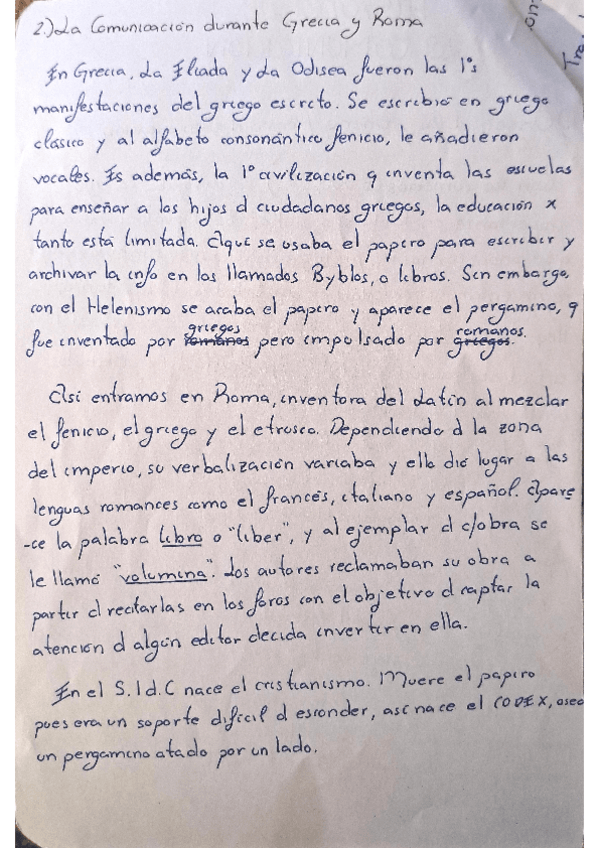 2.) La Comunicación durante Grecia y Roma
En Grecia, La Iliada y La Odisea fueron las 1ªs
manifestaciones del griego escrito. Se escribió en griego
clásico y al alfabeto consonántico fenicio, le añadieron
vocales. Es además, la 1ª civilización q inventa las escuelas
para enseñar a los hijos d ciudadanos griegos, la educación x
tanto está limitada. Aquí se usaba el papiro para escribir y
archivar la info en los llamados Byblos, o libros. Sin embargo,
con el Helenismo se acaba el papiro y aparece el pergamino, q
fue inventado por romanos griegos pero impulsado por griegos romanos.
Así entramos en Roma, inventora del Latín al mezclar
el fenicio, el griego y el etrusco. Dependiendo d la zona
del imperio, su verbalización variaba y ello dió lugar a las
lenguas romances como el francés, italiano y español. Apare
-ce la palabra libro o "liber", y al ejemplar d c/obra se
le llamó "volumina". Los autores reclamaban su obra a
partir d recitarlas en los foros con el objetivo d captar la
atención d algún editor decida invertir en ella.
En el S.I d.C nace el cristianismo. Muere el papiro
pues era un soporte difícil d esconder, así nace el CODEX, osea
un pergamino atado por un lado.